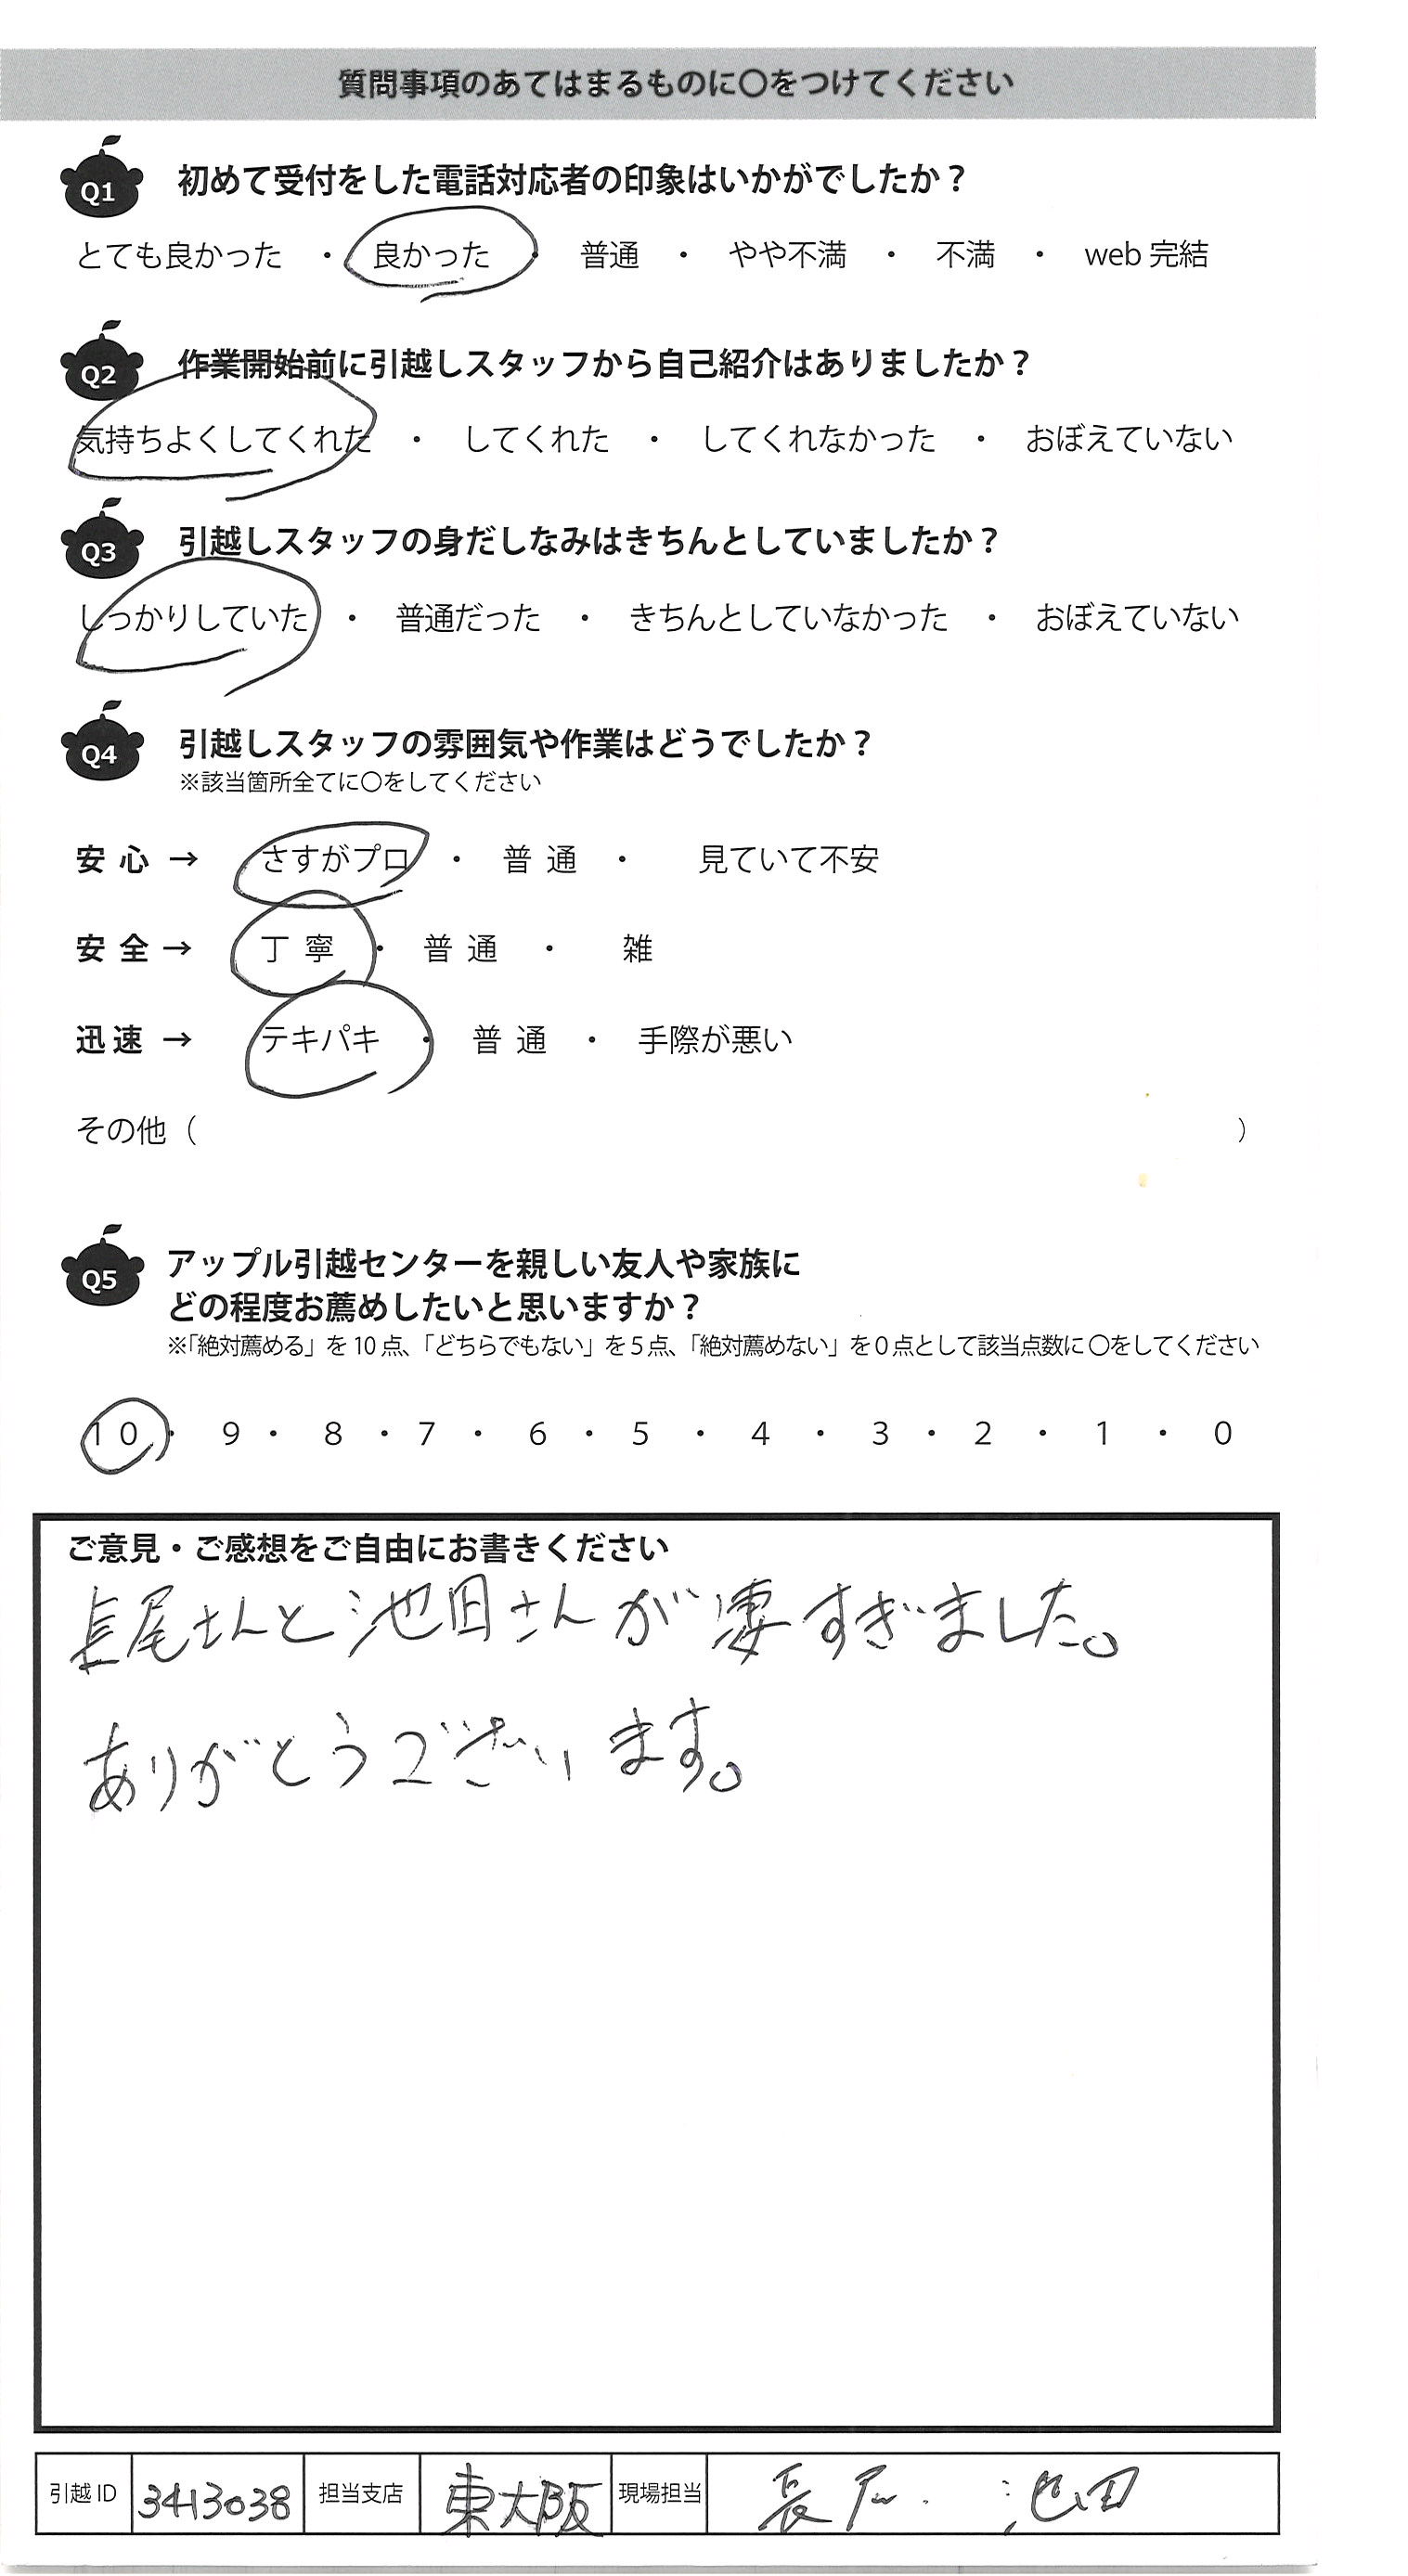 質問事項のあてはまるものに〇をつけてください
Q1 初めて受付をした電話対応者の印象はいかがでしたか？
とても良かった ・ 良かった ・ 普通 ・ やや不満 ・ 不満 ・ web 完結
Q2 作業開始前に引越しスタッフから自己紹介はありましたか？
気持ちよくしてくれた ・ してくれた ・ してくれなかった ・ おぼえていない
Q3 引越しスタッフの身だしなみはきちんとしていましたか？
しっかりしていた ・ 普通だった ・ きちんとしていなかった ・ おぼえていない
Q4 引越しスタッフの雰囲気や作業はどうでしたか？
※該当箇所全てに〇をしてください
安心 → さすがプロ ・ 普通 ・ 見ていて不安
安全 → 丁寧 ・ 普通 ・ 雑
迅速 → テキパキ ・ 普通 ・ 手際が悪い
その他（ ）
Q5 アップル引越センターを親しい友人や家族に
どの程度お薦めしたいと思いますか？
※「絶対薦める」を10点、「どちらでもない」を5点、「絶対薦めない」を0点として該当点数に〇をしてください
10 ・ 9 ・ 8 ・ 7 ・ 6 ・ 5 ・ 4 ・ 3 ・ 2 ・ 1 ・ 0
ご意見・ご感想をご自由にお書きください
長尾さんと池田さんが凄すぎました。
ありがとうございます。
引越ID 3413038 担当支店 東大阪 現場担当 長尾 池田